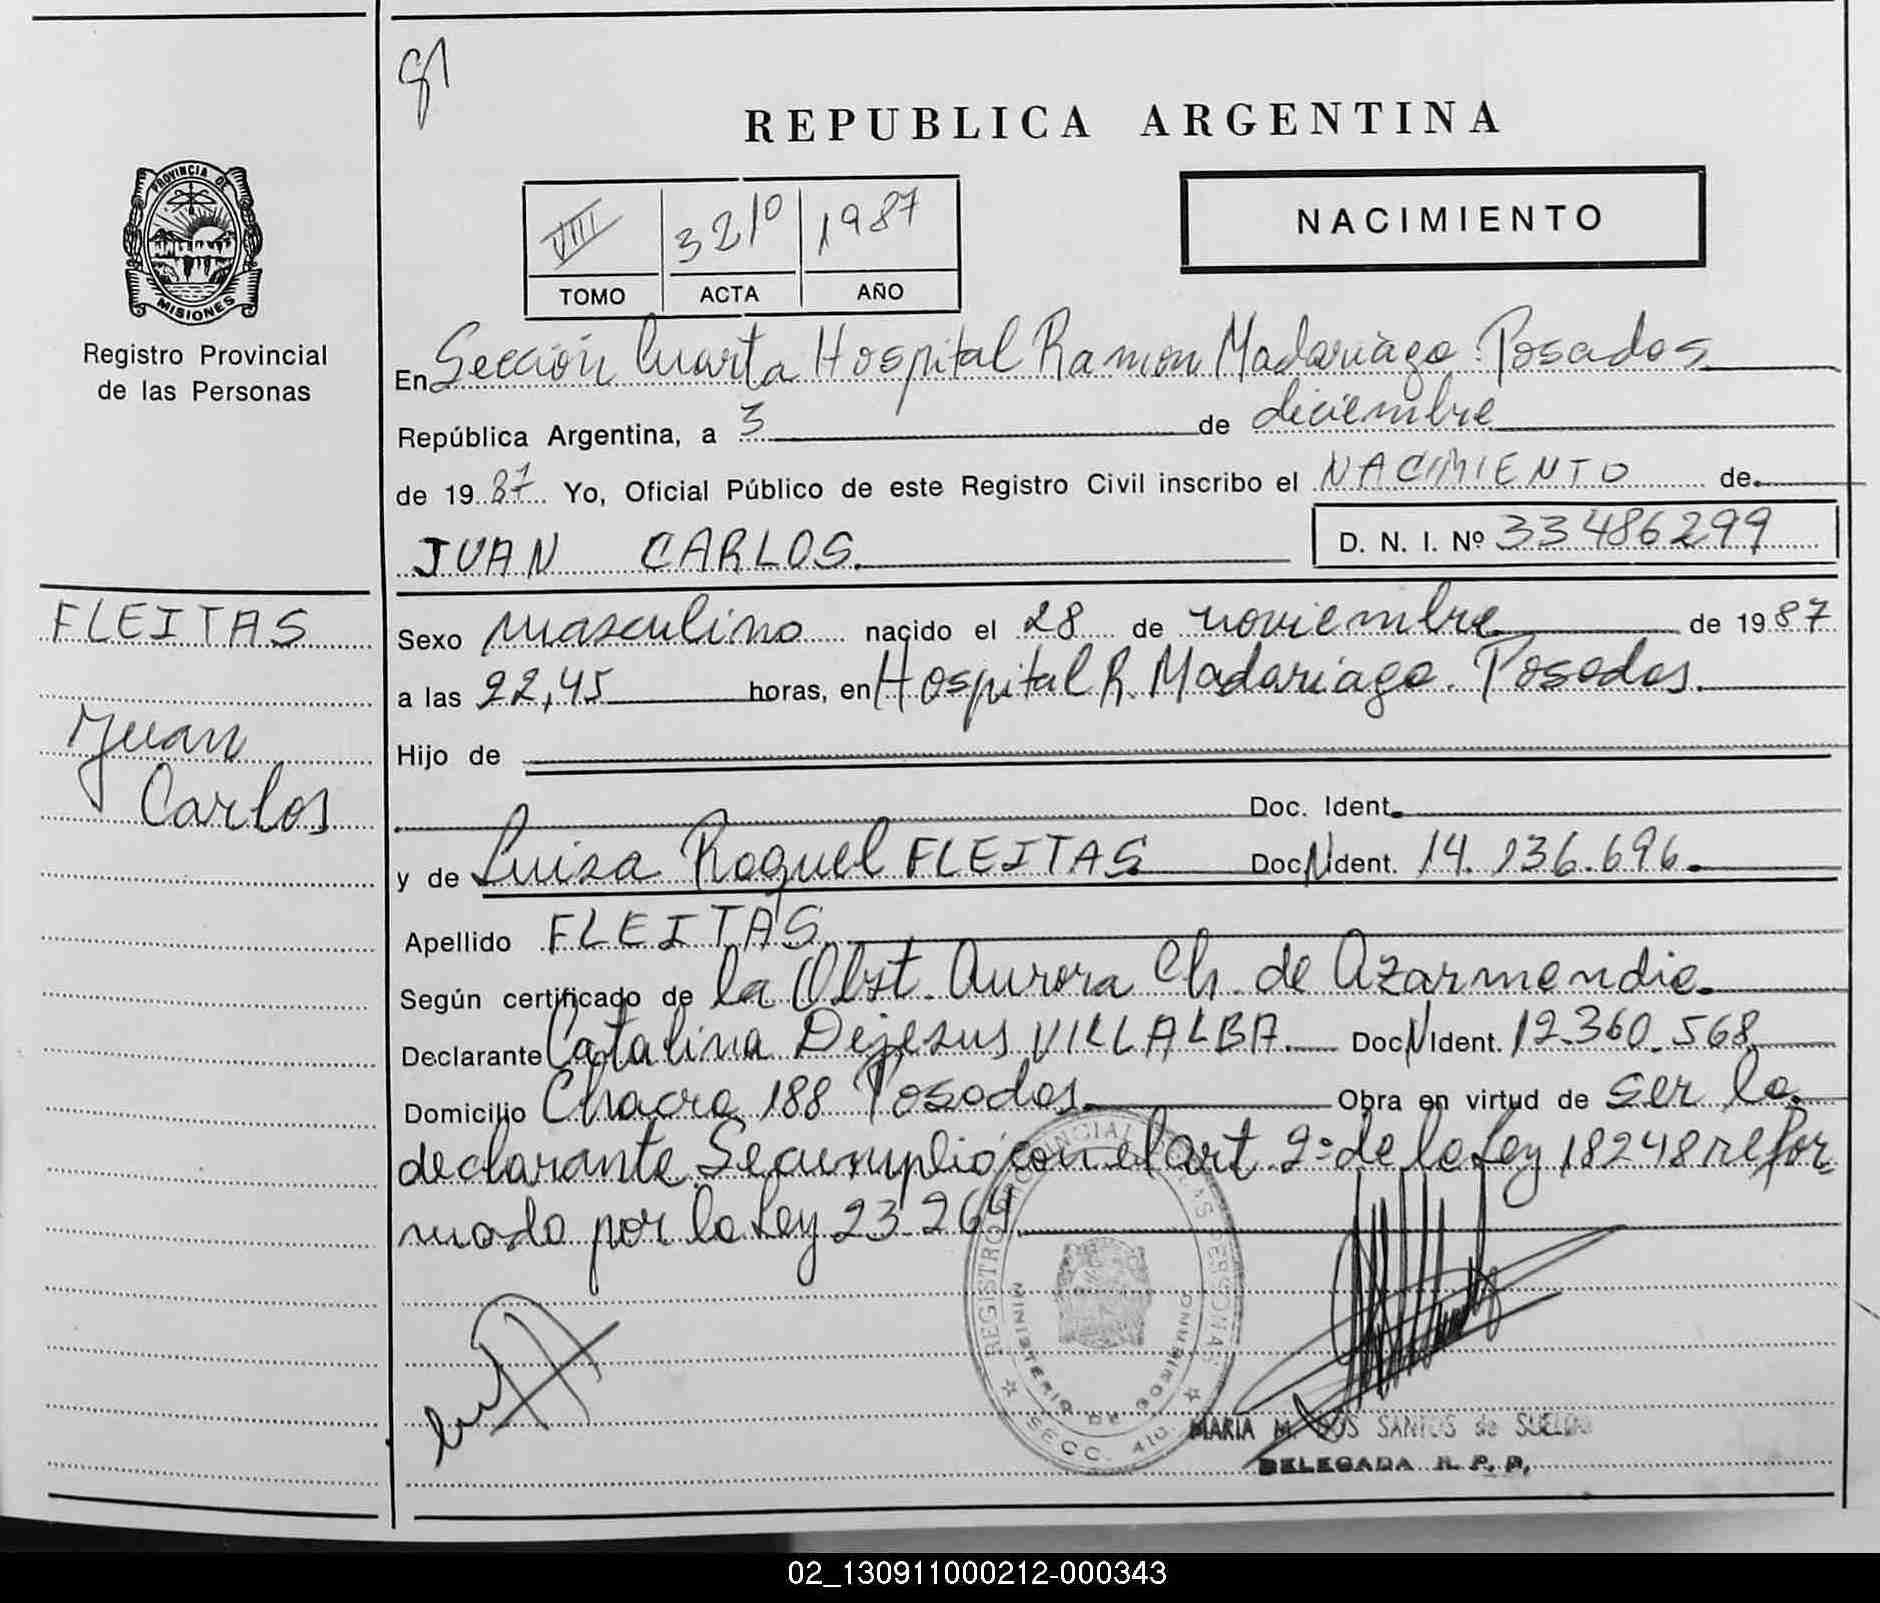 91
REPUBLICA ARGENTINA
PROVINCIA DE
MISIONES
Registro Provincial
de las Personas
VIII 3210 1987
TOMO ACTA AÑO
NACIMIENTO
En Sección Cuarta Hospital Ramon Madariaga. Posadas
República Argentina, a 3 de diciembre
de 1987 Yo, Oficial Público de este Registro Civil inscribo el NACIMIENTO de
JUAN CARLOS. D. N. I. Nº 33486299
FLEITAS
Juan
Carlos
Sexo masculino nacido el 28 de noviembre de 1987
a las 22,45 horas, en Hospital R. Madariaga. Posadas.
Hijo de
Doc. Ident.
y de Luisa Raquel FLEITAS Doc N Ident. 14.136.696.
Apellido FLEITAS
Según certificado de la Obst. Aurora Ch. de Azarmendia.
Declarante Catalina Dejesus VILLALBA. Doc N Ident. 12.360.568
Domicilio Chacra 188 Posadas Obra en virtud de ser la
declarante. Se cumplió con el art 2º de la Ley 18248 refor
mada por la Ley 23.264
REGISTRO PROVINCIAL DE LAS PERSONAS
MINISTERIO DE GOBIERNO
SECC. 4ta.
MARIA M. DOS SANTOS de SUELDO
DELEGADA R. P. P.
02_130911000212-000343